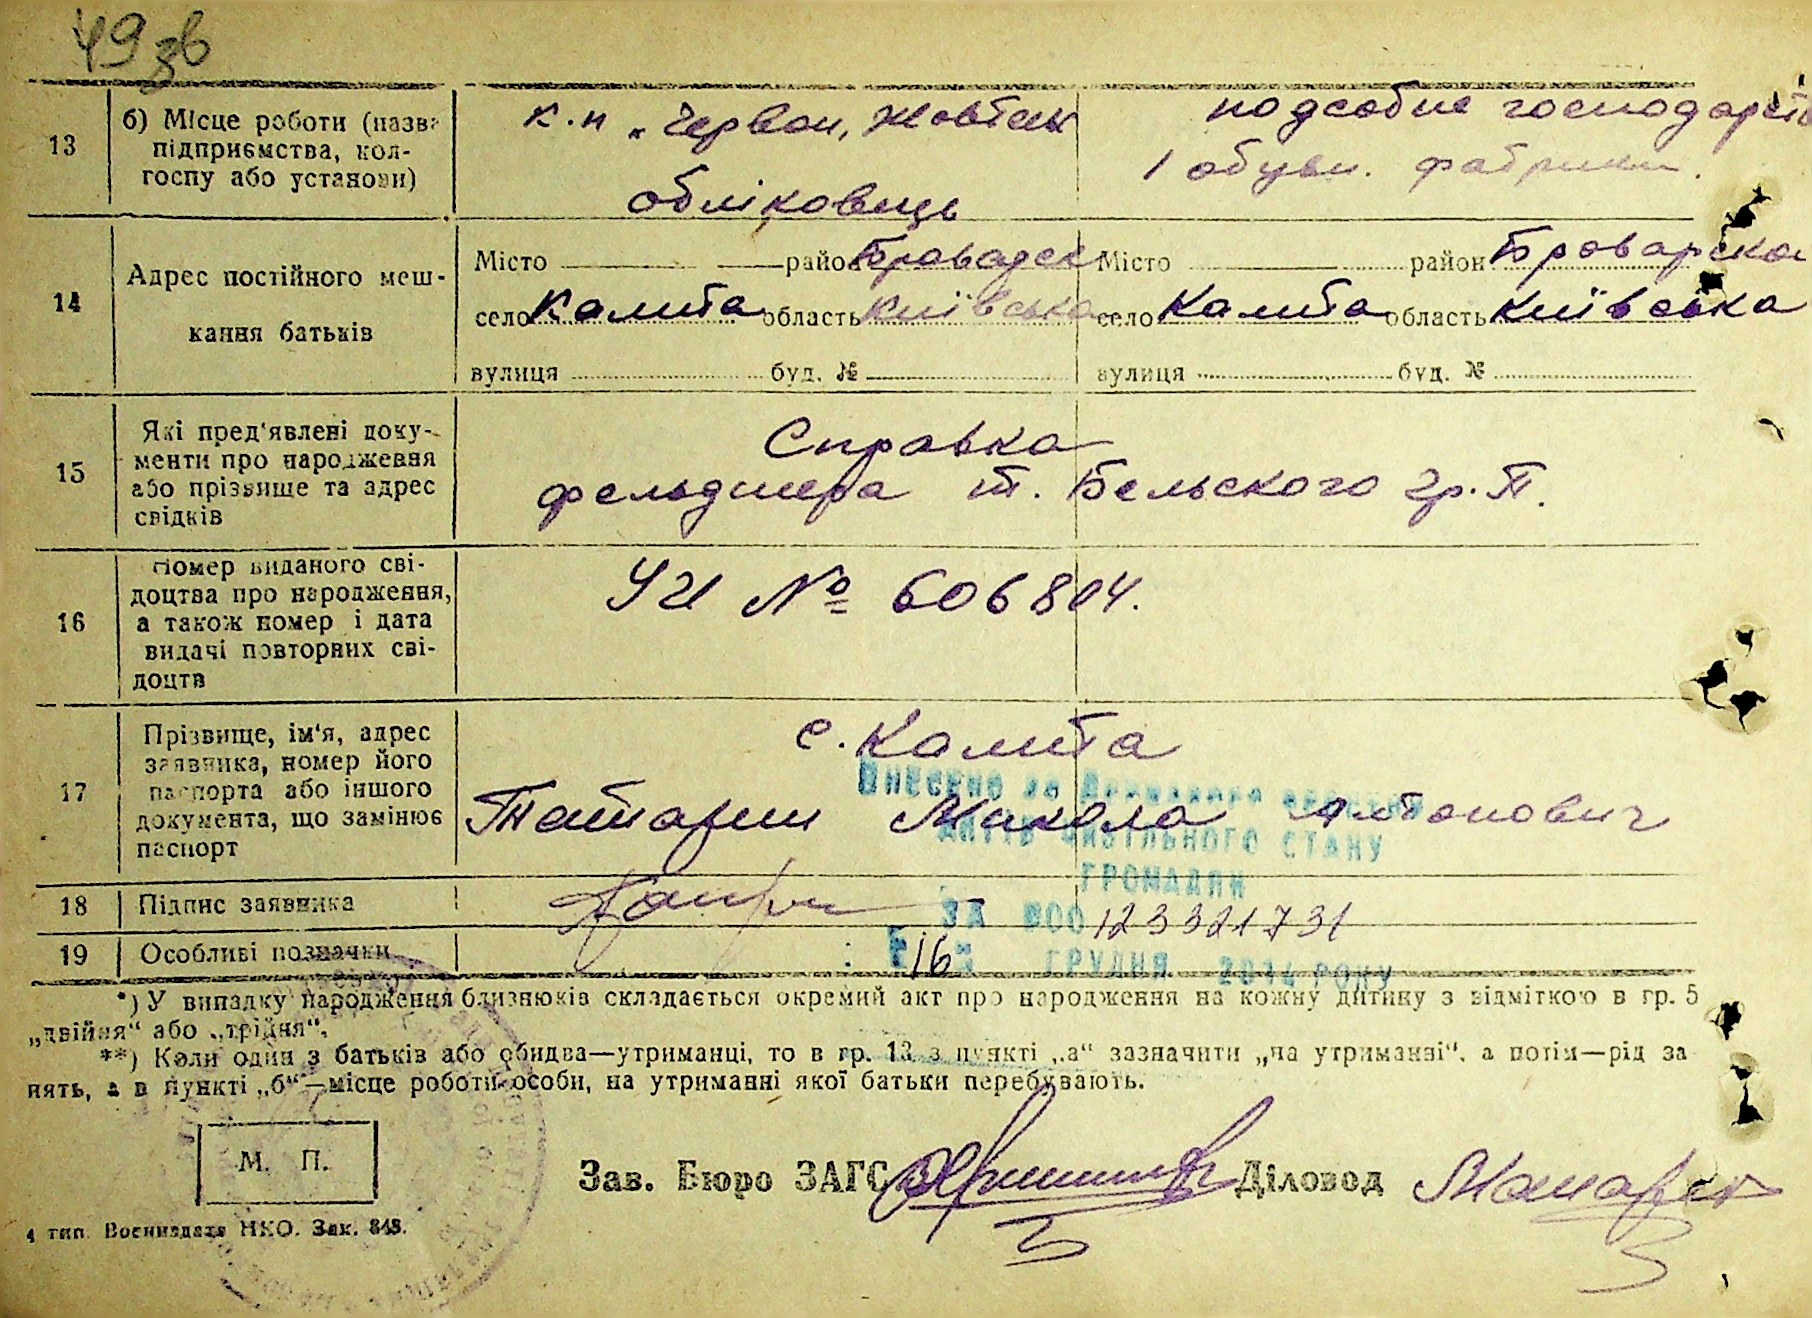 49 зв
13 б) Місце роботи (назва підприємства, колгоспу або установи)
к.н „Червон, Жовтень
обліковець
подсобне господарств
1 обувн. фабрики.
14 Адрес постійного мешкання батьків
Місто район Броварск
село Калита область Київська
вулиця буд. №
Місто район Броварска
село Калита область Київська
вулиця буд. №
15 Які пред'явлені документи про народження або прізвище та адрес свідків
Справка
фельдшера т. Бельского гр. П.
16 Номер виданого свідоцтва про народження, а також номер і дата видачі повторних свідоцтв
УИ № 606804.
17 Прізвище, ім'я, адрес заявника, номер його паспорта або іншого документа, що замінює паспорт
с. Калита
Татарин Микола Антонович
Внесено до Державного реєстру
актів цивільного стану
громадян
18 Підпис заявника
за №00123321731
19 Особливі позначки
16 грудня 2014 року
*) У випадку народження близнюків складається окремий акт про народження на кожну дитину з відміткою в гр. 5
„двійня“ або „трійня“.
**) Коли один з батьків або обидва—утриманці, то в гр. 13 з пункті „а“ зазначити „на утриманні“, а потім—рід за
нять, а в пункті „б“—місце роботи особи, на утриманні якої батьки перебувають.
М. П.
Зав. Бюро ЗАГС Діловод
4 тип. Воениздата НКО. Зак. 848.